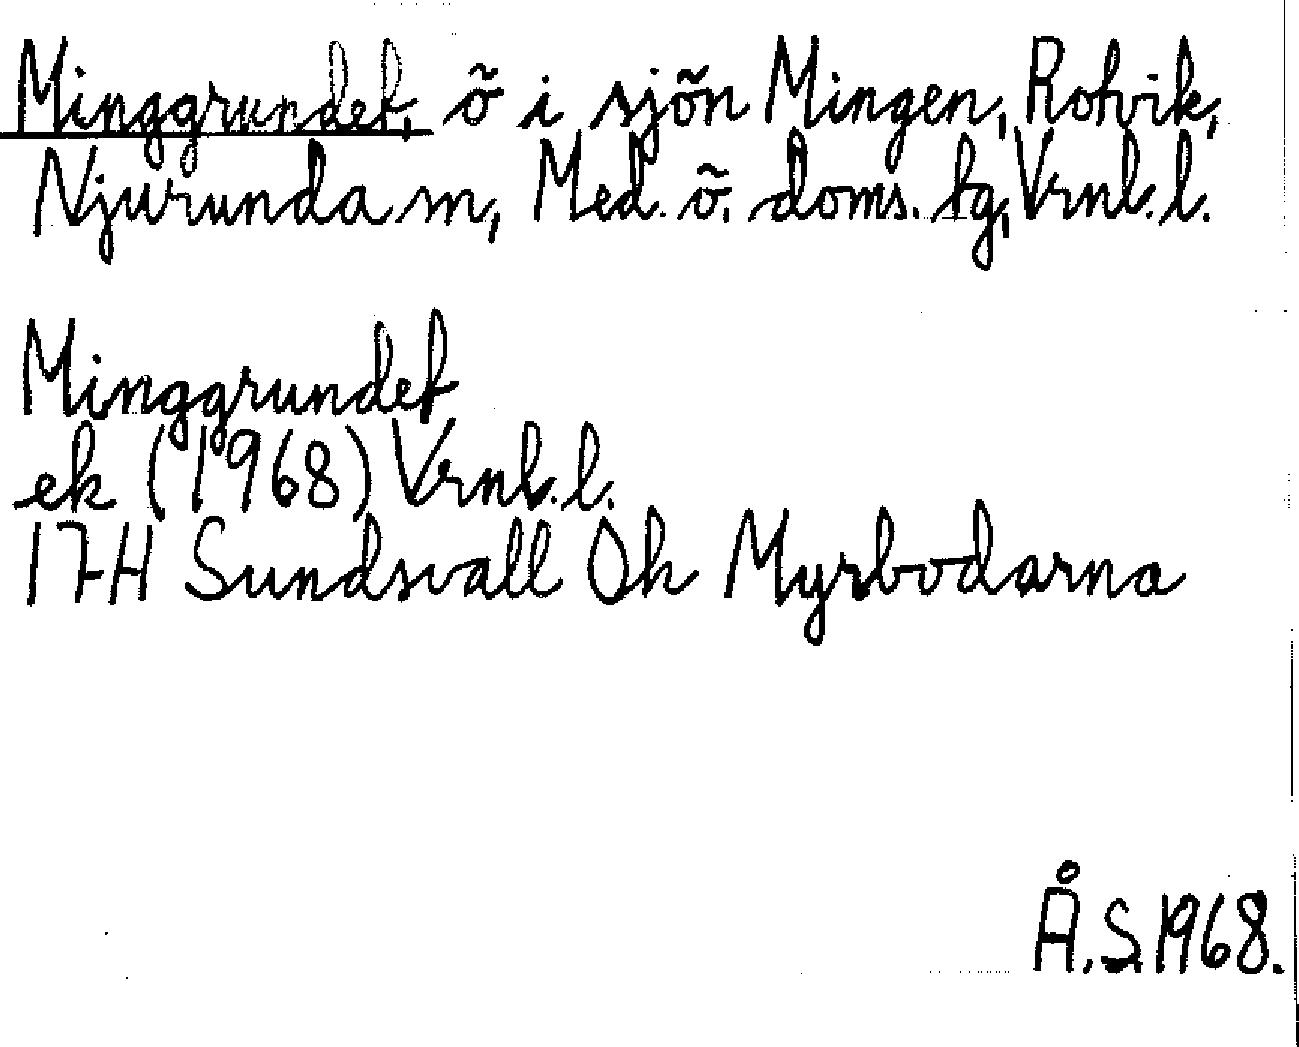 Minggrundet, ö i sjön Mingen, Rotvik,
Njurunda sn, Med. ö. doms. tg, Vrnl. l.
Minggrundet
ek (1968) Vrnl. l.
17H Sundsvall Oh Myrbodarna
Å.S. 1968.